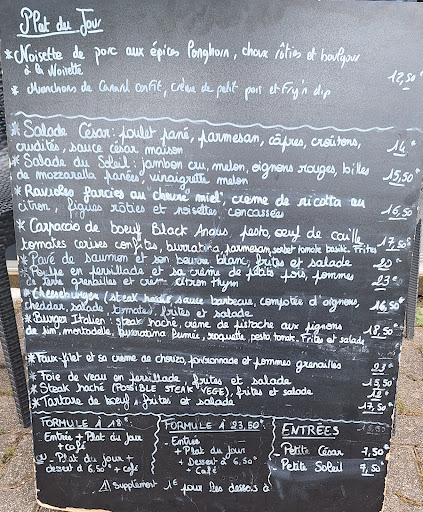 Plat du Jour
* Noisette de porc aux épices Longhorn, choux rôties et boulgour
à la Noisette
* Manchons de Canard confit, crème de petit pois et Fry'n dip
12,50€
* Salade César: poulet pané, parmesan, câpres, croûtons,
crudités, sauce césar maison 14€
* Salade du Soleil: jambon cru, melon, oignons rouges, billes
de mozzarella panées, vinaigrette melon 15,50€
* Ravioles farcies au "chèvre miel", crème de ricotta au
citron, figues rôties et noisettes concassées 16,50
* Carpaccio de boeuf Black Angus, pesto, oeuf de caille,
tomates cerises confites, burratina, parmesan, sorbet tomate basilic. Frites 17,50€
* Pavé de saumon et son beurre blanc, frites et salade 20€
* Poulpe en persillade et sa crème de petits pois, pommes
de terre grenailles et crème citron thym 23€
* Cheeseburger (steak haché, sauce barbecue, compotée d'oignons,
cheddar, salade, tomates), frites et salade 16,50€
* Burger Italien: steak haché, crème de pistache aux pignons
de pin, mortadelle, burratina fumée, roquette, pesto, tomate. Frites et salade 18,50€
* Faux-filet et sa crème de chorizo, poivronnade et pommes grenailles 23€
* Foie de veau en persillade, frites et salade 15,50
* Steak haché (POSSIBLE STEAK VEGE), frites et salade 12€
* Tartare de boeuf, frites et salade 17,50€
FORMULE À 18€
- Entrée + Plat du jour
+ café
ou - Plat du jour +
dessert à 6.50€ + café
FORMULE À 23,50€
- Entrée
+ Plat du jour
+ Dessert à 6,50€
+ Café
⚠ Supplément 1€ pour les desserts à
ENTRÉES
- Petite César 7,50€
- Petite Soleil 7,50€